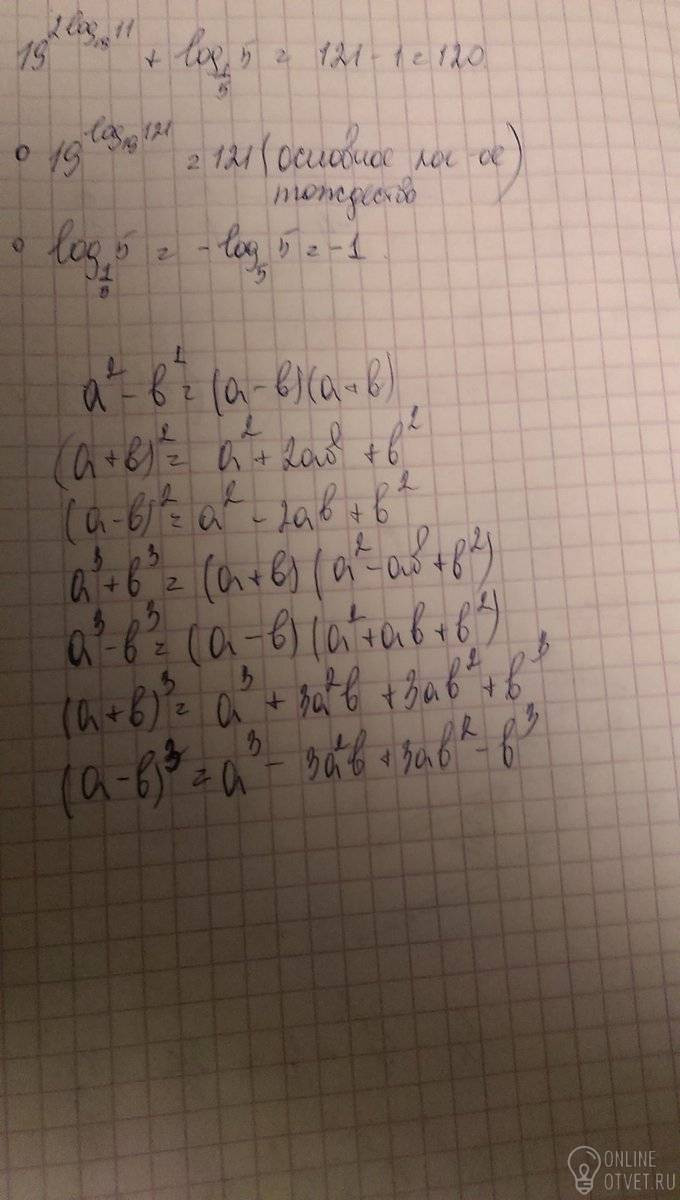 19^(2log₁₉11) + log_(1/5) 5 = 121 - 1 = 120
19^(log₁₉121) = 121 (основное лог-ое
тождество)
log_(1/5) 5 = -log₅ 5 = -1.
a² - в² = (a - в)(a + в)
(a + в)² = a² + 2aв + в²
(a - в)² = a² - 2aв + в²
a³ + в³ = (a + в)(a² - aв + в²)
a³ - в³ = (a - в)(a² + aв + в²)
(a + в)³ = a³ + 3a²в + 3aв² + в³
(a - в)³ = a³ - 3a²в + 3aв² - в³
ONLINE
OTVET.RU